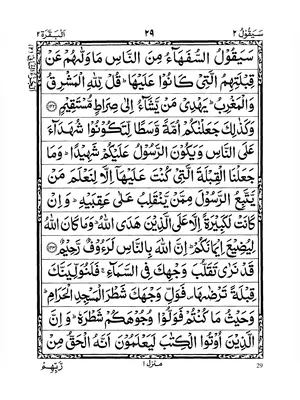 سَيَقُوْلُ ٢ ٢٩ اَلْبَقَرَة ٢
سَيَقُوْلُ السُّفَهَآءُ مِنَ النَّاسِ مَا وَلّٰىهُمْ عَنْ
قِبْلَتِهِمُ الَّتِيْ كَانُوْا عَلَيْهَا ؕ قُلْ لِّلّٰهِ الْمَشْرِقُ
وَالْمَغْرِبُ ؕ يَهْدِيْ مَنْ يَّشَآءُ اِلٰى صِرَاطٍ مُّسْتَقِيْمٍ ﴿١٤٢﴾
وَكَذٰلِكَ جَعَلْنٰكُمْ اُمَّةً وَّسَطًا لِّتَكُوْنُوْا شُهَدَآءَ
عَلَى النَّاسِ وَيَكُوْنَ الرَّسُوْلُ عَلَيْكُمْ شَهِيْدًا ؕ وَمَا
جَعَلْنَا الْقِبْلَةَ الَّتِيْ كُنْتَ عَلَيْهَآ اِلَّا لِنَعْلَمَ مَنْ
يَّتَّبِعُ الرَّسُوْلَ مِمَّنْ يَّنْقَلِبُ عَلٰى عَقِبَيْهِ ؕ وَاِنْ
كَانَتْ لَكَبِيْرَةً اِلَّا عَلَى الَّذِيْنَ هَدَى اللّٰهُ ؕ وَمَا كَانَ اللّٰهُ
لِيُضِيْعَ اِيْمَانَكُمْ ؕ اِنَّ اللّٰهَ بِالنَّاسِ لَرَءُوْفٌ رَّحِيْمٌ ﴿١٤٣﴾
قَدْ نَرٰى تَقَلُّبَ وَجْهِكَ فِي السَّمَآءِ ۚ فَلَنُوَلِّيَنَّكَ
قِبْلَةً تَرْضٰىهَا ۪ فَوَلِّ وَجْهَكَ شَطْرَ الْمَسْجِدِ الْحَرَامِ ؕ
وَحَيْثُ مَا كُنْتُمْ فَوَلُّوْا وُجُوْهَكُمْ شَطْرَهٗ ؕ وَاِنَّ
الَّذِيْنَ اُوْتُوا الْكِتٰبَ لَيَعْلَمُوْنَ اَنَّهُ الْحَقُّ مِنْ
رَّبِّهِمْ منزل ١ 29